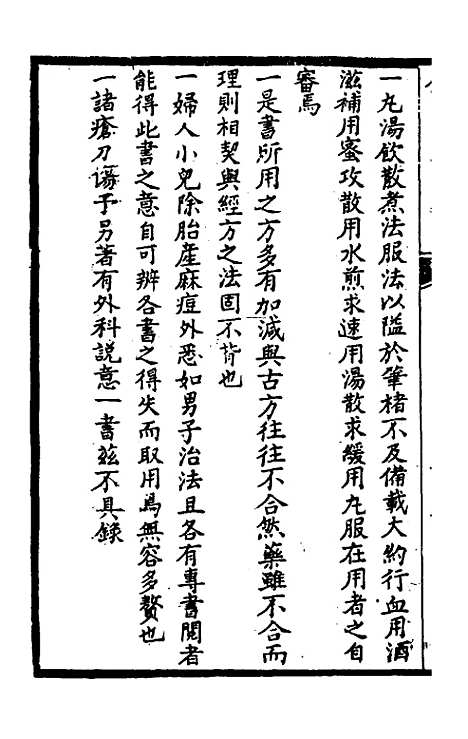 一丸湯飲散煮法服法以隘於筆楮不及備載大約行血用酒
滋補用蜜攻散用水煎求速用湯散求緩用丸服在用者之自
審焉
一是書所用之方多有加減與古方往往不合然藥雖不合而
理則相契與經方之法固不背也
一婦人小兒除胎產麻痘外悉如男子治法且各有專書閱者
能得此書之意自可辨各書之得失而取用焉無容多贅也
一諸瘡刀傷予另著有外科説意一書茲不具錄